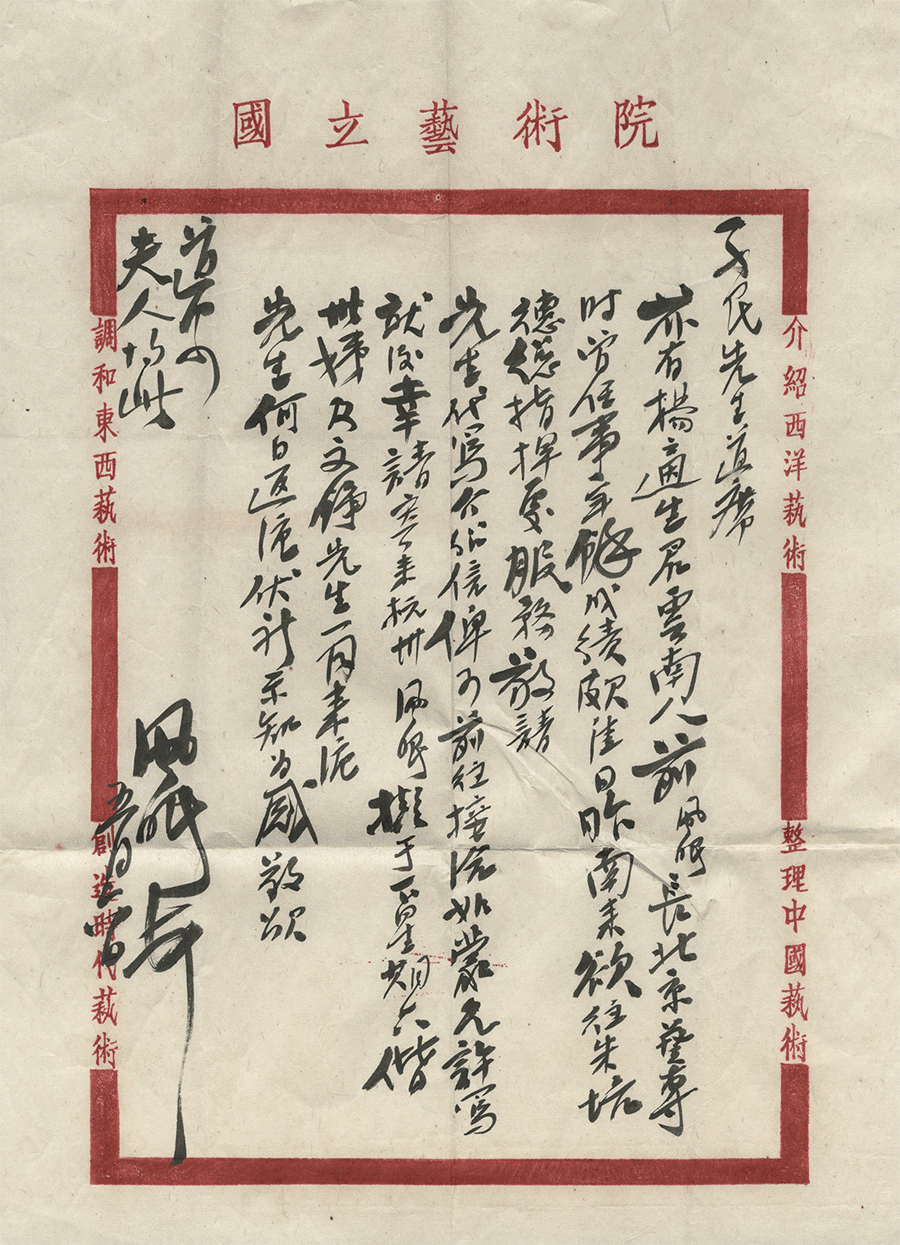 國立藝術院
介紹西洋藝術
整理中國藝術
調和東西藝術
創造時代藝術
子民先生道席
亦有楊適生君雲南人前風眠長北京藝專
時曾任事年餘成績頗佳日昨南來欲往朱培
德總指揮處服務敬請
先生代寫介紹信俾可前往接洽如蒙允許寫
就後幸請寄來杭州風眠擬于下星期六偕
世姊及文錚先生一同來滬
先生何日返滬伏祈示知為感敬頌
道安
夫人均此
風眠
五月